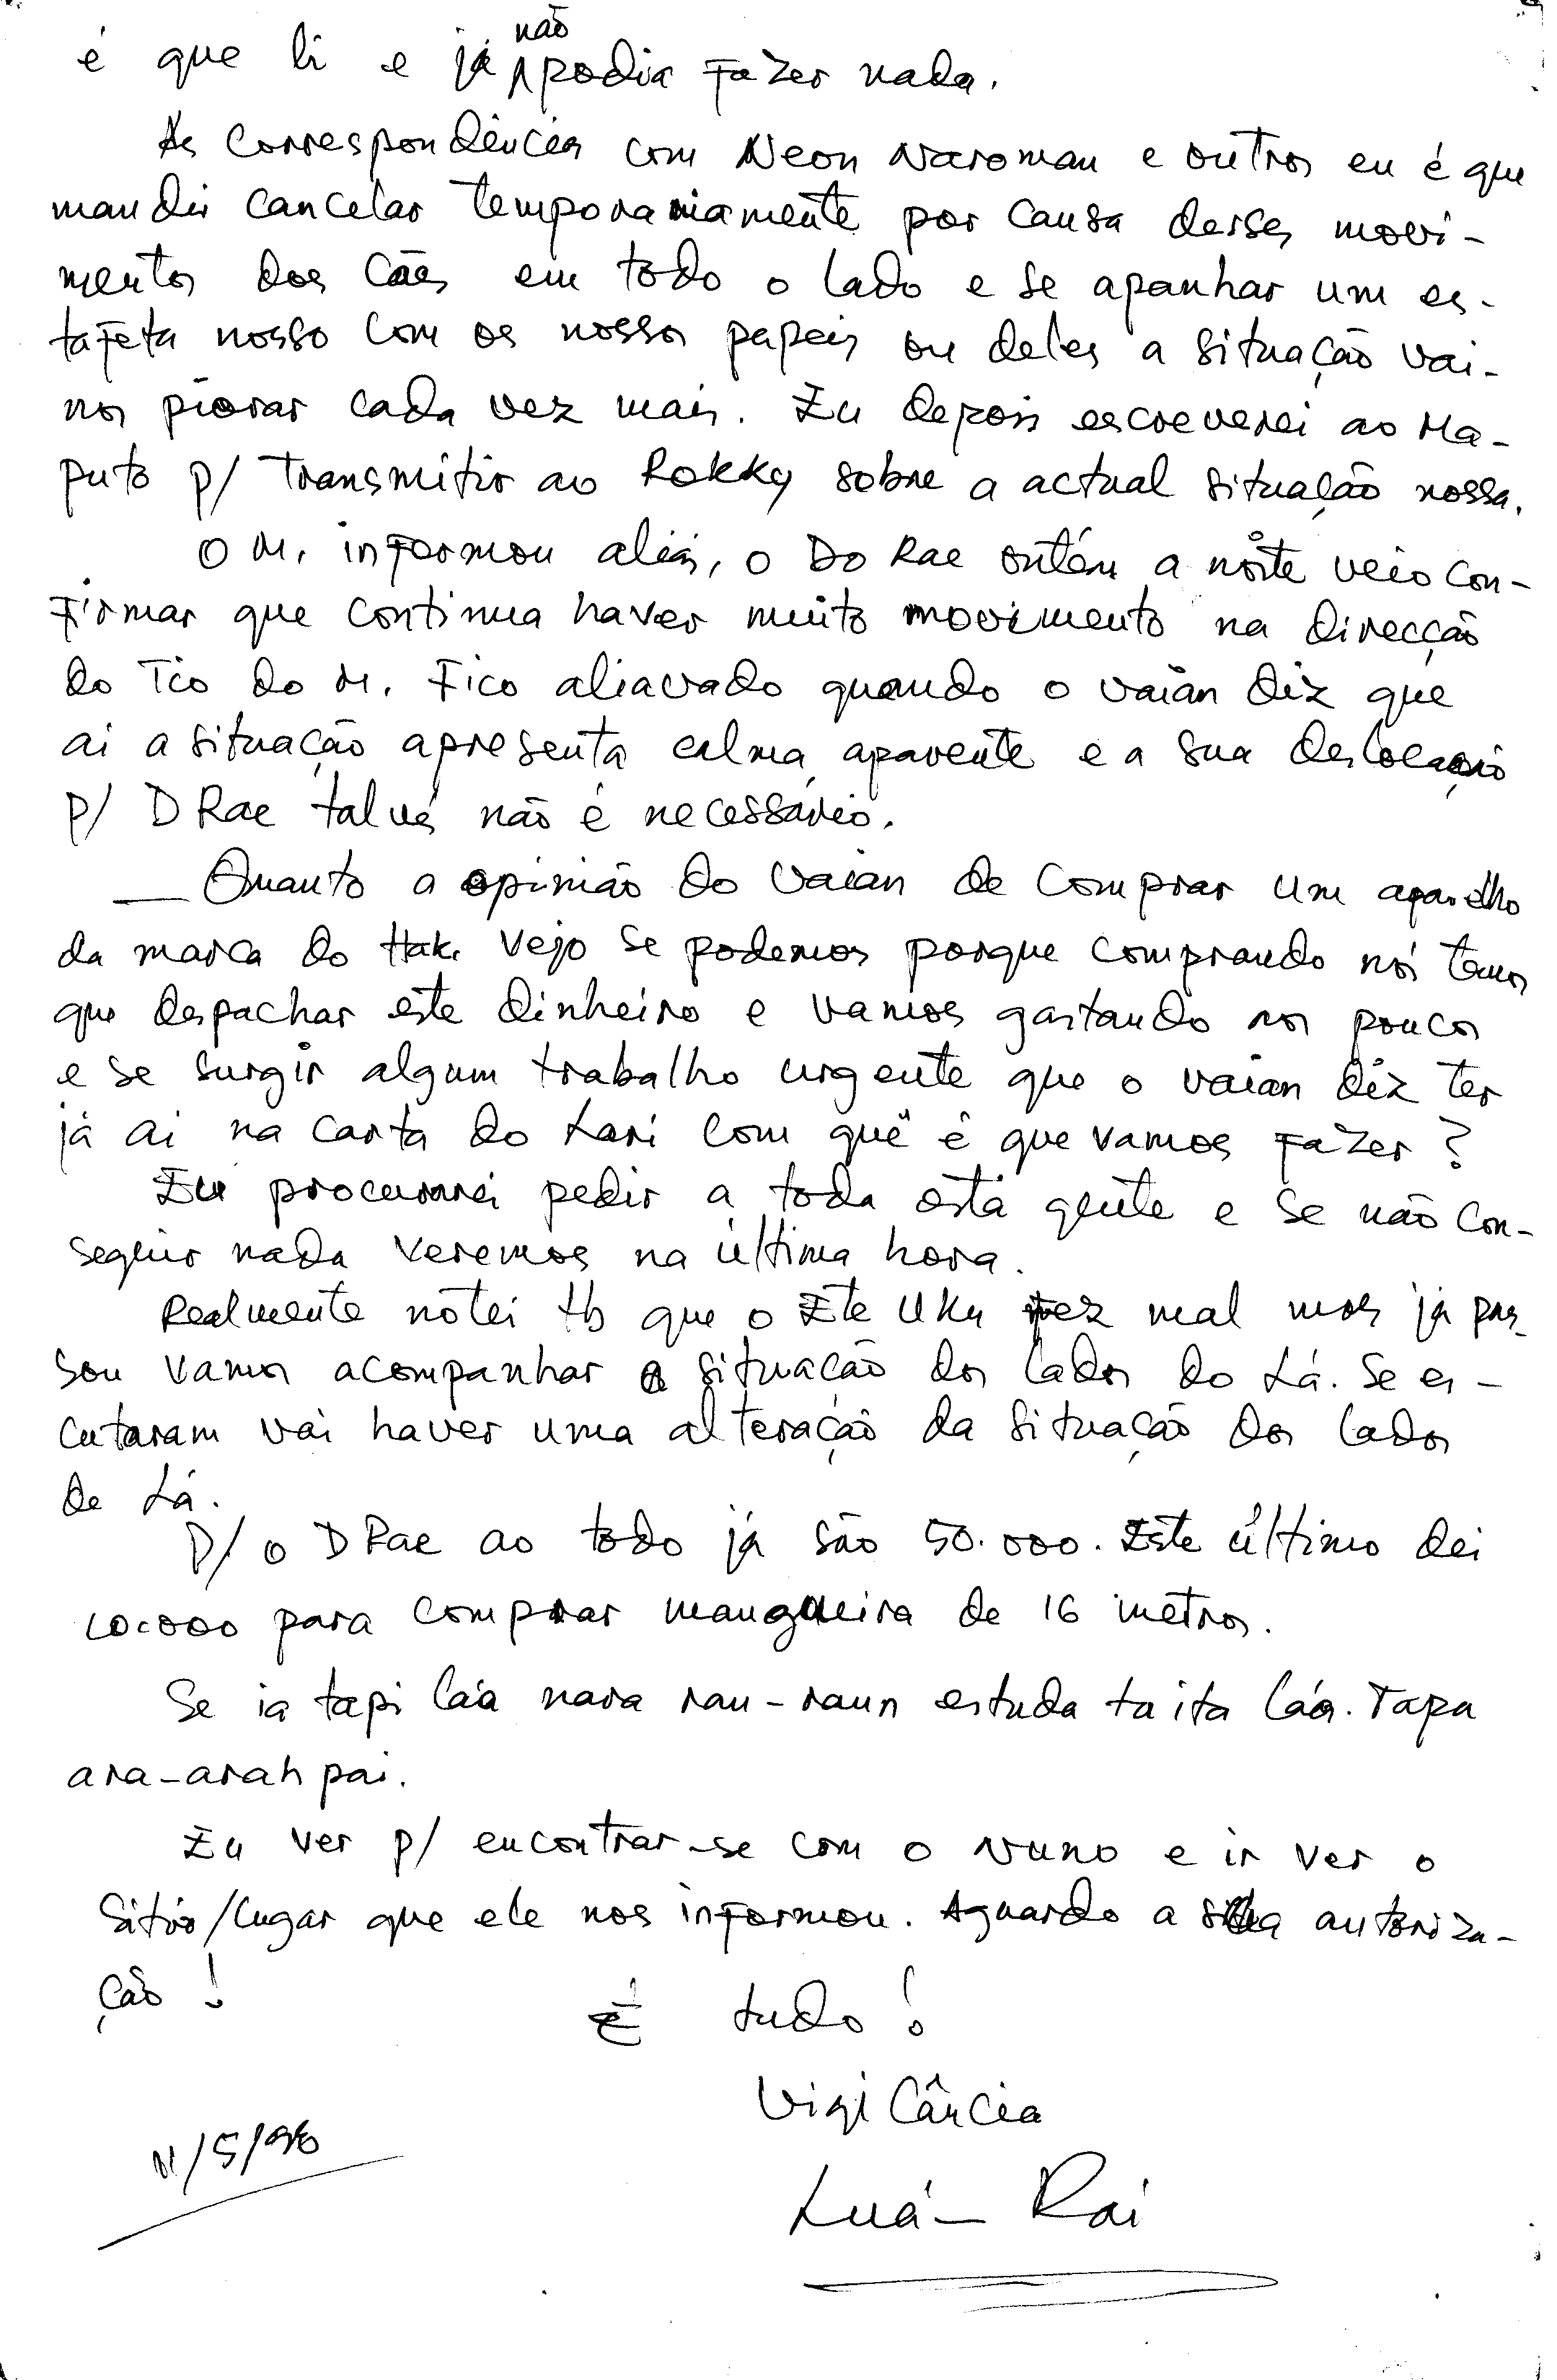 é que li e já não podia fazer nada.
As correspondências com Neon Naroman e outros eu é que
mandei cancelar temporariamente por causa desses movi-
mentos dos cães em todo o lado e se apanhar um es-
tafeta nosso com os nossos papeis ou deles a situação vai-
nos piorar cada vez mais. Eu depois escreverei ao Ma-
puto p/ transmitir ao Rokky sobre a actual situação nossa.
O M. informou aliás, o Do Rae ontém a noite veio con-
firmar que continua haver muito movimento na direcção
do Tio do M. Fico aliavado quando o Vaian diz que
ai a situação apresenta calma aparente e a sua deslocação
p/ D Rae talvés não é necessário.
— Quanto a opinião do Vaian de comprar um aparelho
da marca do Hak. Vejo se podemos porque comprando nós temos
que despachar este dinheiro e vamos gastando aos poucos
e se surgir algum trabalho urgente que o Vaian diz ter
já ai na carta do Lari com quê é que vamos fazer?
Eu procurarei pedir a toda esta gente e se não con-
seguir nada veremos na última hora.
Realmente notei tb que o Ete Uku fez mal mas já pas-
sou vamos acompanhar a situação dos lados do Lá. Se es-
cutaram vai haver uma alteração da situação dos lados
de Lá.
P/ o D Rae ao todo já são 50.000. Este último dei
10.000 para comprar mangueira de 16 metros.
Se ia tapi láa nara rau-raun estuda ta ita láa. Tapa
ara-arah pai.
Eu ver p/ encontrar-se com o Nuno e ir ver o
Sítio/lugar que ele nos informou. Aguardo a sua autoriza-
ção!
É tudo!
Vigilância
11/5/98
Luá-Rai